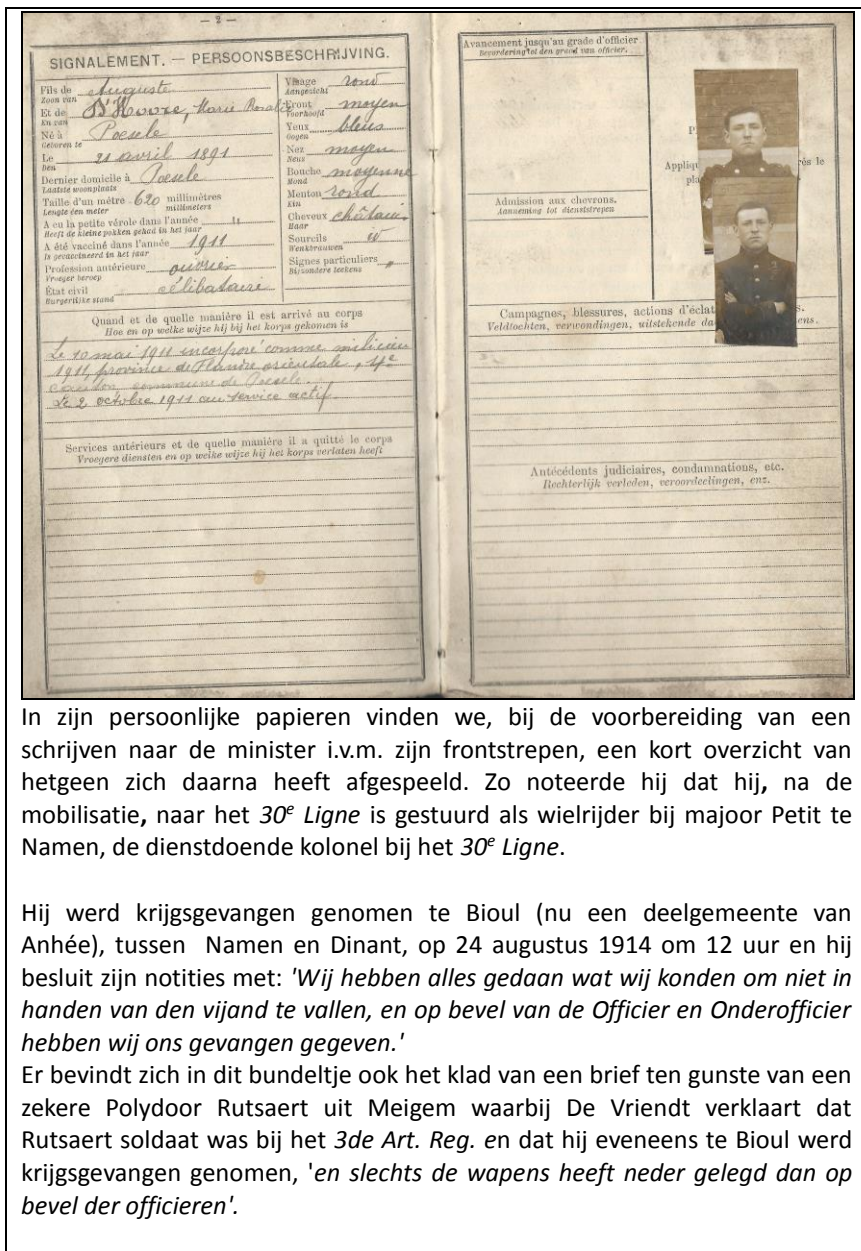 — 2 —
SIGNALEMENT. — PERSOONSBESCHRIJVING.
Fils de Auguste
Zoon van
Et de D'Hoore, Marie Rosalie
En van
Né à Poesele
Geboren te
Le 21 avril 1891
Den
Dernier domicile à Poesele
Laatste woonplaats
Taille d'un mètre 620 millimètres
Lengte één meter millimeters
A eu la petite vérole dans l'année "
Heeft de kleine pokken gehad in het jaar
A été vacciné dans l'année 1911
Is gevaccineerd in het jaar
Profession antérieure ouvrier
Vroeger beroep
État civil célibataire
Burgerlijke stand
Visage rond
Aangezicht
Front moyen
Voorhoofd
Yeux bleus
Oogen
Nez moyen
Neus
Bouche moyenne
Mond
Menton rond
Kin
Cheveux châtain
Haar
Sourcils id
Wenkbrauwen
Signes particuliers "
Bijzondere teekens
Quand et de quelle manière il est arrivé au corps
Hoe en op welke wijze hij bij het korps gekomen is
Le 10 mai 1911 incorporé comme milicien
1911, province de Flandre orientale, 14e
canton, commune de Poesele.
Le 2 octobre 1911 au service actif.
Services antérieurs et de quelle manière il a quitté le corps
Vroegere diensten en op welke wijze hij het korps verlaten heeft
Avancement jusqu'au grade d'officier
Bevordering tot den graad van officier.
Admission aux chevrons.
Aanneming tot dienststrepen
Appliqu
rès le
pla
Campagnes, blessures, actions d'éclat
s.
Veldtochten, verwondingen, uitstekende da
ens.
Antécédents judiciaires, condamnations, etc.
Rechterlijk verleden, veroordeelingen, enz.
In zijn persoonlijke papieren vinden we, bij de voorbereiding van een
schrijven naar de minister i.v.m. zijn frontstrepen, een kort overzicht van
hetgeen zich daarna heeft afgespeeld. Zo noteerde hij dat hij, na de
mobilisatie, naar het 30e Ligne is gestuurd als wielrijder bij majoor Petit te
Namen, de dienstdoende kolonel bij het 30e Ligne.
Hij werd krijgsgevangen genomen te Bioul (nu een deelgemeente van
Anhée), tussen Namen en Dinant, op 24 augustus 1914 om 12 uur en hij
besluit zijn notities met: 'Wij hebben alles gedaan wat wij konden om niet in
handen van den vijand te vallen, en op bevel van de Officier en Onderofficier
hebben wij ons gevangen gegeven.'
Er bevindt zich in dit bundeltje ook het klad van een brief ten gunste van een
zekere Polydoor Rutsaert uit Meigem waarbij De Vriendt verklaart dat
Rutsaert soldaat was bij het 3de Art. Reg. en dat hij eveneens te Bioul werd
krijgsgevangen genomen, 'en slechts de wapens heeft neder gelegd dan op
bevel der officieren'.